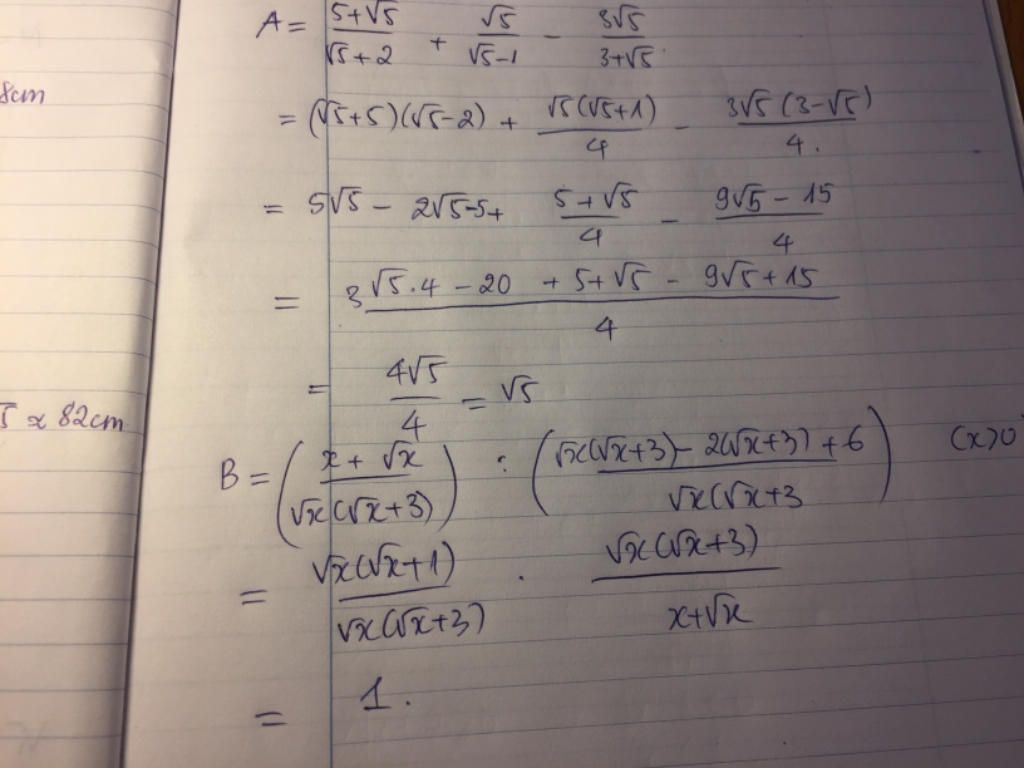 A = (5+√5)/(√5+2) + √5/(√5-1) - 3√5/(3+√5)
8cm
= (√5+5)(√5-2) + √5(√5+1)/4 - 3√5(3-√5)/4.
= 5√5 - 2√5-5+ (5+√5)/4 - (9√5-15)/4
= (3√5.4 - 20 + 5+√5 - 9√5+15)/4
= 4√5/4 = √5
≈ 82cm
B = ((x + √x)/(√x(√x+3))) : ((√x(√x+3) - 2(√x+3) + 6)/(√x(√x+3)) (x>0
= √x(√x+1)/(√x(√x+3)) . √x(√x+3)/(x+√x)
= 1.